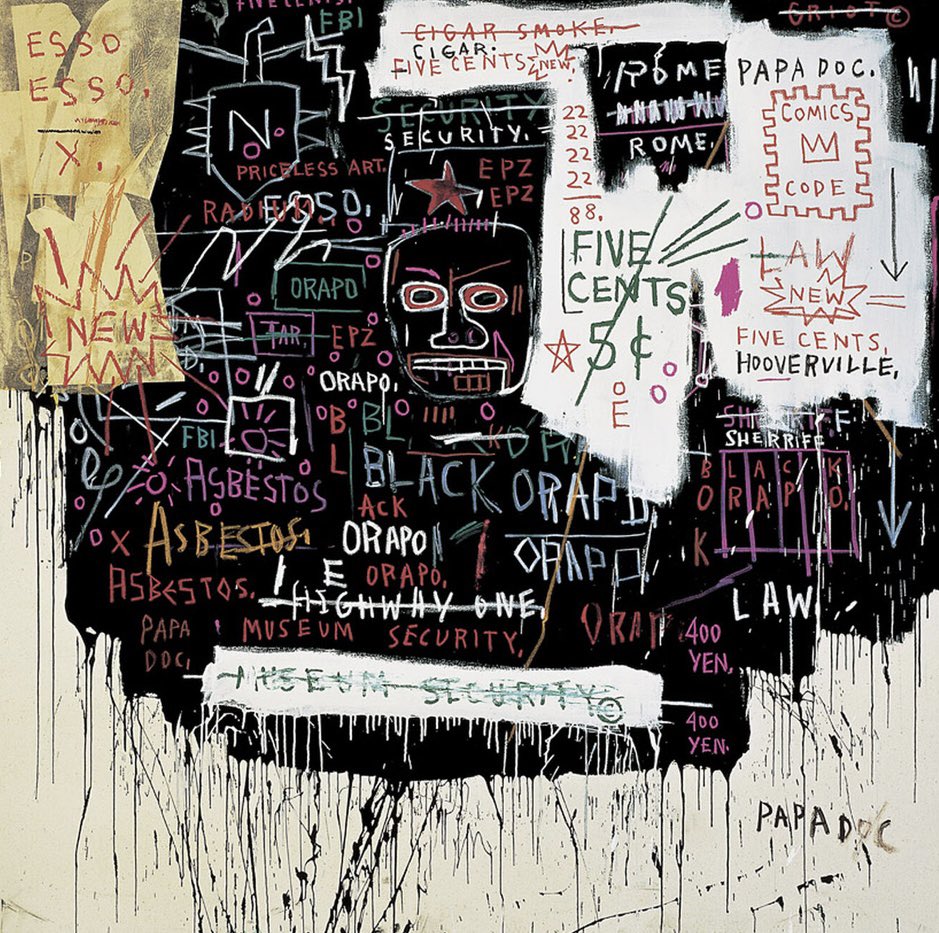 FIVE CENTS.
FBI
GRIOT ©
ESSO
ESSO.
X.
NEW
N
PRICELESS ART.
RADIUM.
ESSO.
ORAPO
TAR.
EPZ
ORAPO.
FBI
CIGAR SMOKE.
CIGAR.
FIVE CENTS
NEW.
SECURITY
SECURITY.
EPZ
EPZ
22
22
22
22
88.
FIVE
CENTS
5¢
E
ROME
ROME.
PAPA DOC.
COMICS
CODE
LAW
NEW
FIVE CENTS.
HOOVERVILLE.
B
L
BL
BLACK
ACK
ORAPO
ORAPO
ORAPO
E
ORAPO.
ASBESTOS
X
ASBESTOS.
ASBESTOS.
HIGHWAY ONE.
SHERRIFF
B
O
K
BLACK
ORAPO.
LAW
PAPA
DOC.
MUSEUM SECURITY.
400
YEN.
MUSEUM SECURITY ©
400
YEN.
PAPA DOC